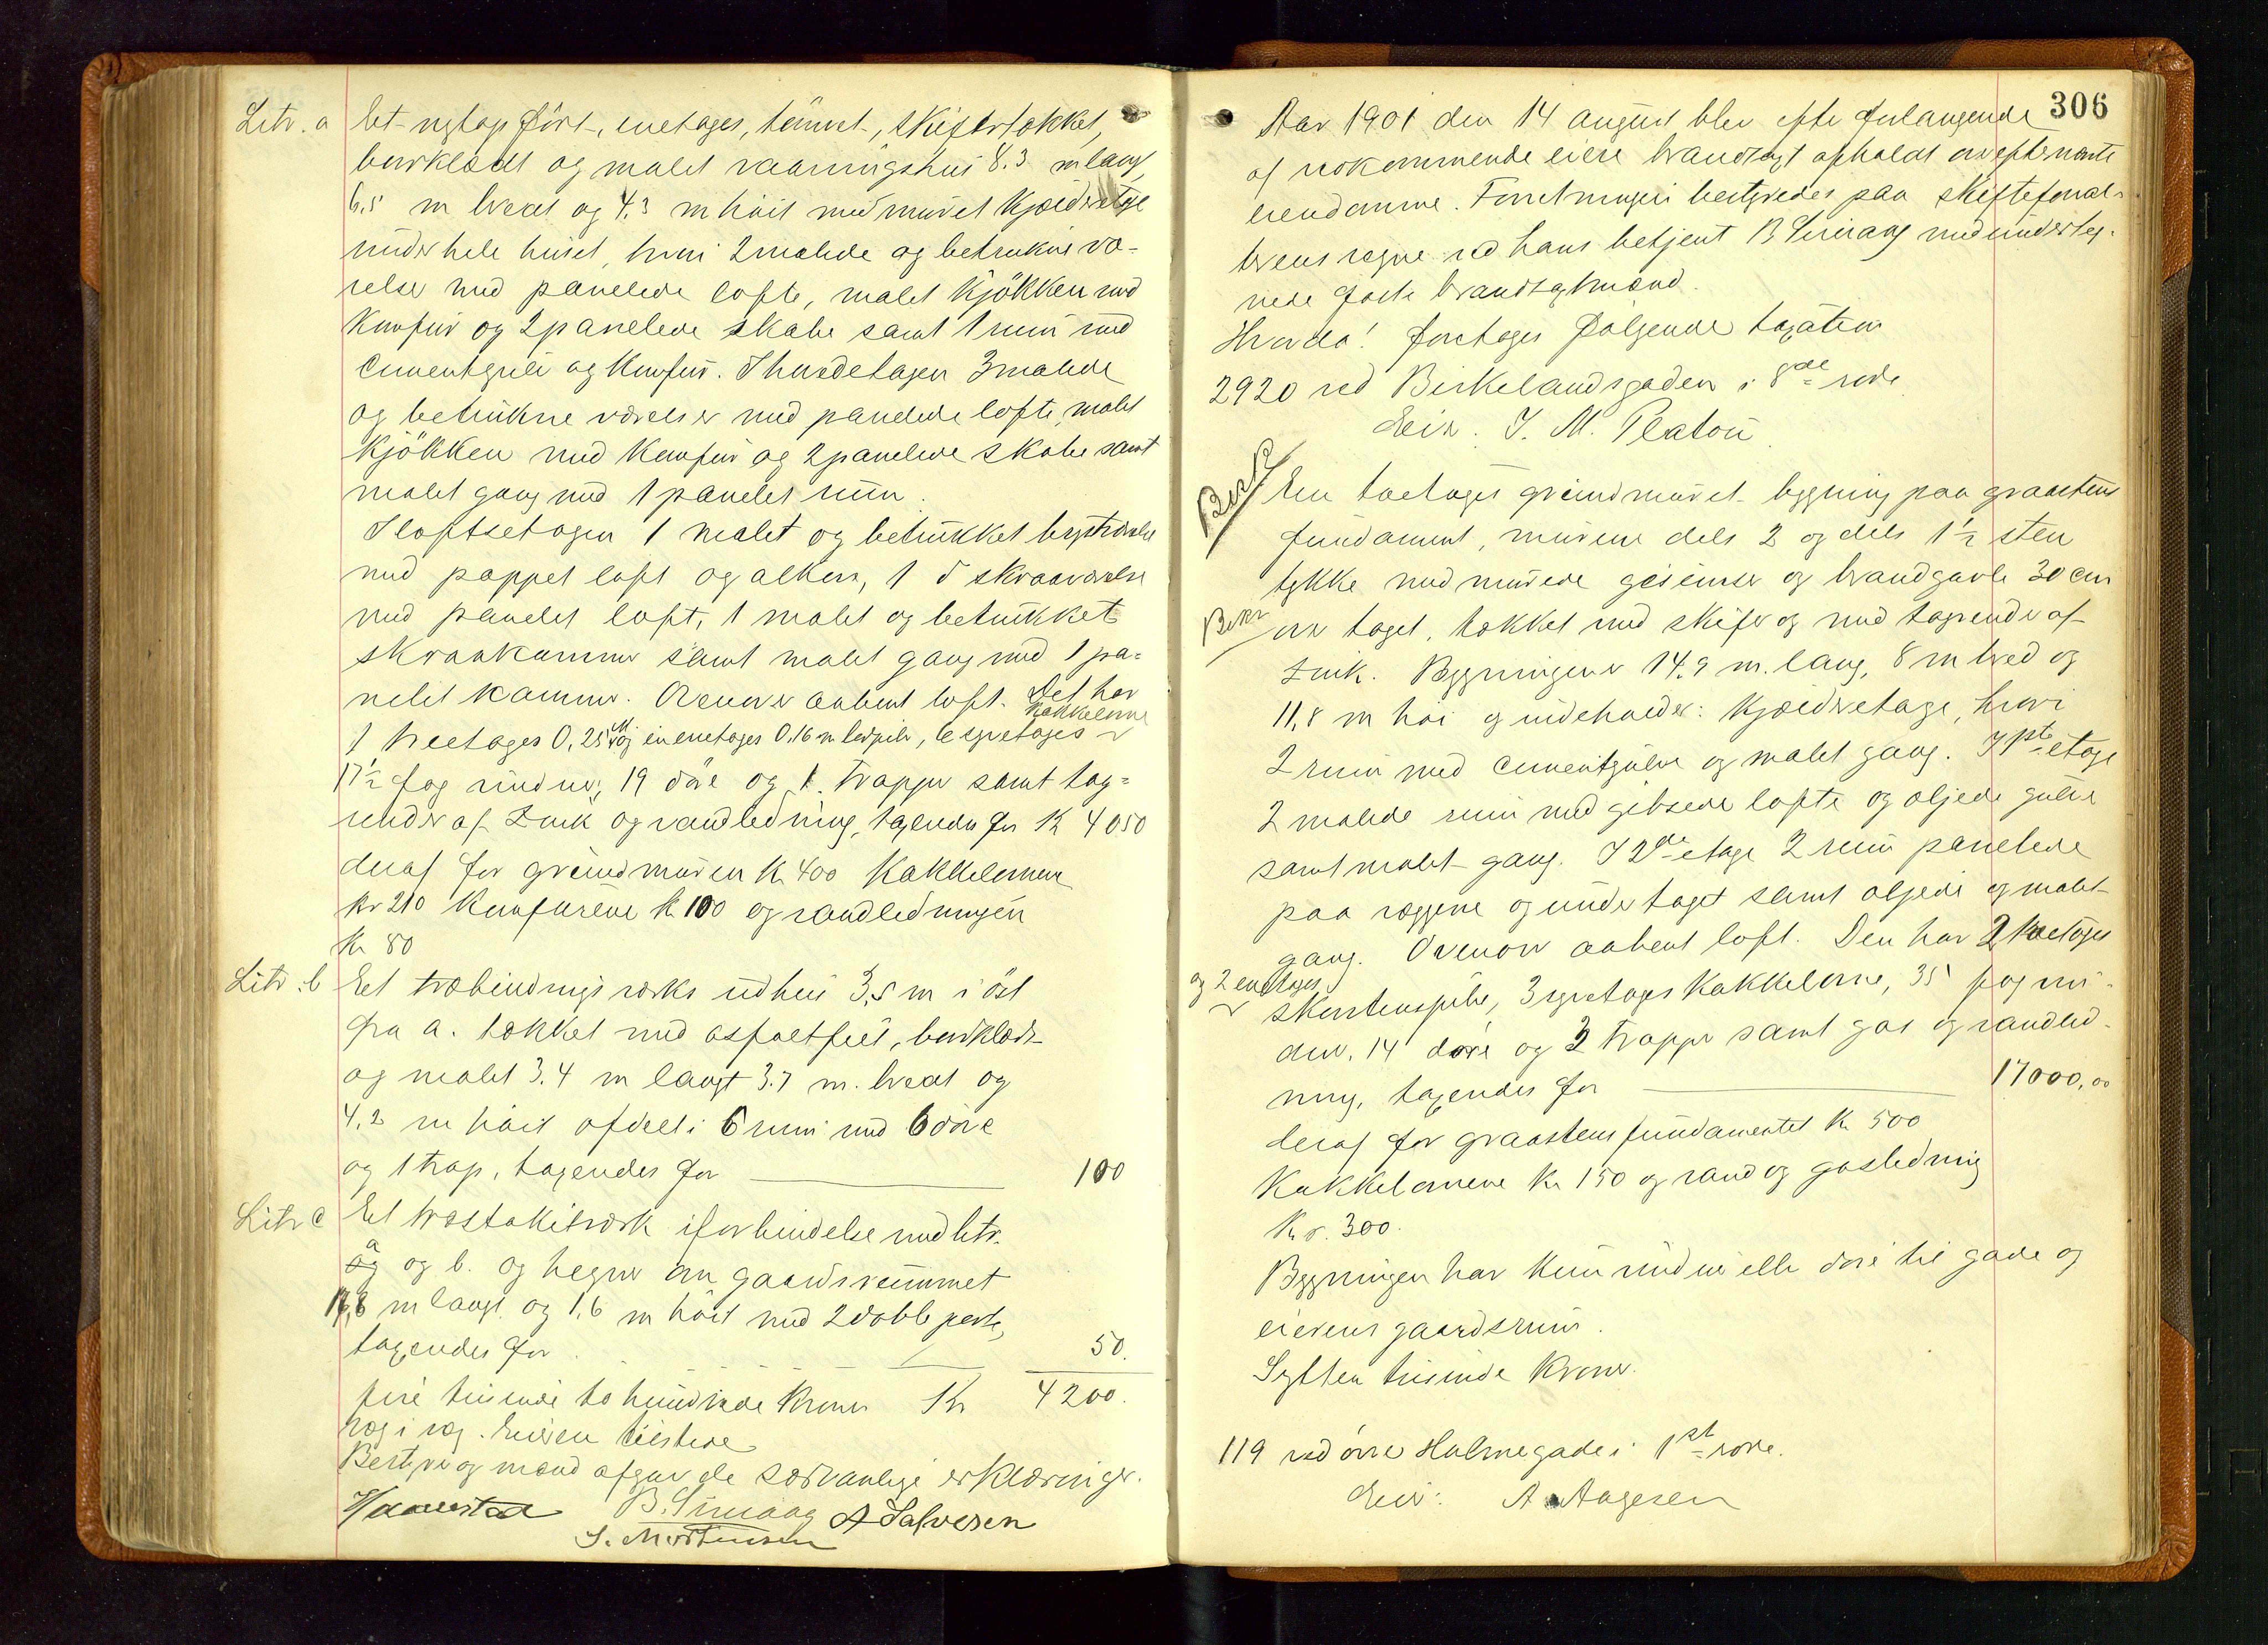 Litr. a Et nyopført, enetages, tømret, skifertækket,
bordklædt og malet vaaningshus 8.3 m langt,
6,5 m bredt og 4,3 m höit med muret Kjælderetage
under hele huset, hvori 2 malede og betrukne væ-
relser med panelede lofte, malet Kjökken med
Komfur og 2 panelede skabe samt 1 rum med
Cementgulv og Komfur. I hovedetagen 3 malede
og betrukne værelser med panelede lofte, malet
Kjökken med Komfur og 2 panelede skabe samt
malet gang med 1 panelet rum.
I loftsetagen 1 malet og betrukket kvistværelse
med pappet loft og alkove, 1 do skraaværelse
med panelet loft, 1 malet og betrukket
skraakammer samt malet gang med 1 pa-
nelet kammer. Ovenover aabent loft. Det har
1 treetages 0,25 m og en enetages 0,16 m ledpibe, 6 syvetages Kakkelovne
17½ fag vinduer, 19 döre og 1 trapper samt tag-
render af Zink og vandledning, taxeredes for Kr 4050
deraf for grundmuren Kr 400 Kakkelovnene
Kr 210 Komfurene Kr 100 og vandledningen
Kr 80
Litr. b Et træbindingsværks udhus 3,5 m i öst
fra a. tækket med asfaltfilt, bordklædt
og malet 3.4 m langt 3.7 m. bredt og
4,2 m höit afdelt i 6 rum med 6 döre
og 1 trap, taxeredes for 100
Litr c Et træstakitværk i forbindelse med litr.
a og b. og hegner om gaardsrummet
18,8 m langt og 1,6 m höit med 2 doble porte,
taxeredes for 50.
fire tusinde to hundrede Kroner Kr 4200.
væg i væg. Eieren tilstede
Bestyrer og mænd afgav de sædvanlige erklæringer.
Haavestad B. Simaag A Salvesen
S. Mortensen
306
Aar 1901 den 14 august blev efter forlangende
af vedkommende eiere brandtaxt afholdt over efternævnte
eiendomme. Forretningen bestyredes paa skifteforval-
terens vegne ved hans betjent B Simaag med underteg-
nede faste brandtaxtmænd.
Hvorda! foretoges følgende taxation
2920 ved Birkelandsgaden i 8de rode
Eier: I. M. Platou
En toetages grundmuret bygning paa graastens
fundament, murene dels 2 og dels 1½ sten
tykke med murede gesimser og brandgavle 30 cm
over taget, tækket med skifer og med tagrender af
Zink. Bygningen er 14,9 m. lang, 8 m bred og
11,8 m höi og indeholder: Kjælderetage, hvori
2 rum med cementgulve og malet gang. I 1ste etage
2 malede rum med gibsede lofte og oljede gulve
samt malet gang. I 2den etage 2 rum panelede
paa væggene og under taget samt oljede og malet
gang. Ovenover aabent loft. Den har 2 toetages
og 2 enetages
skorstenspiber, 3 syvetages Kakkelovne, 35 fag vin-
duer, 14 döre og 3 trapper samt gas og vandled-
ning, taxeredes for 17000,00
deraf for graastensfundamentet Kr 500
Kakkelovnene Kr 150 og vand og gasledning
Kr. 300.
Bygningen har kun vinduer eller döre til gade og
eierens gaardsrum.
Sytten tusinde Kroner.
119 ved øvre Holmegade i 1ste rode.
Eier: A. Aagesen